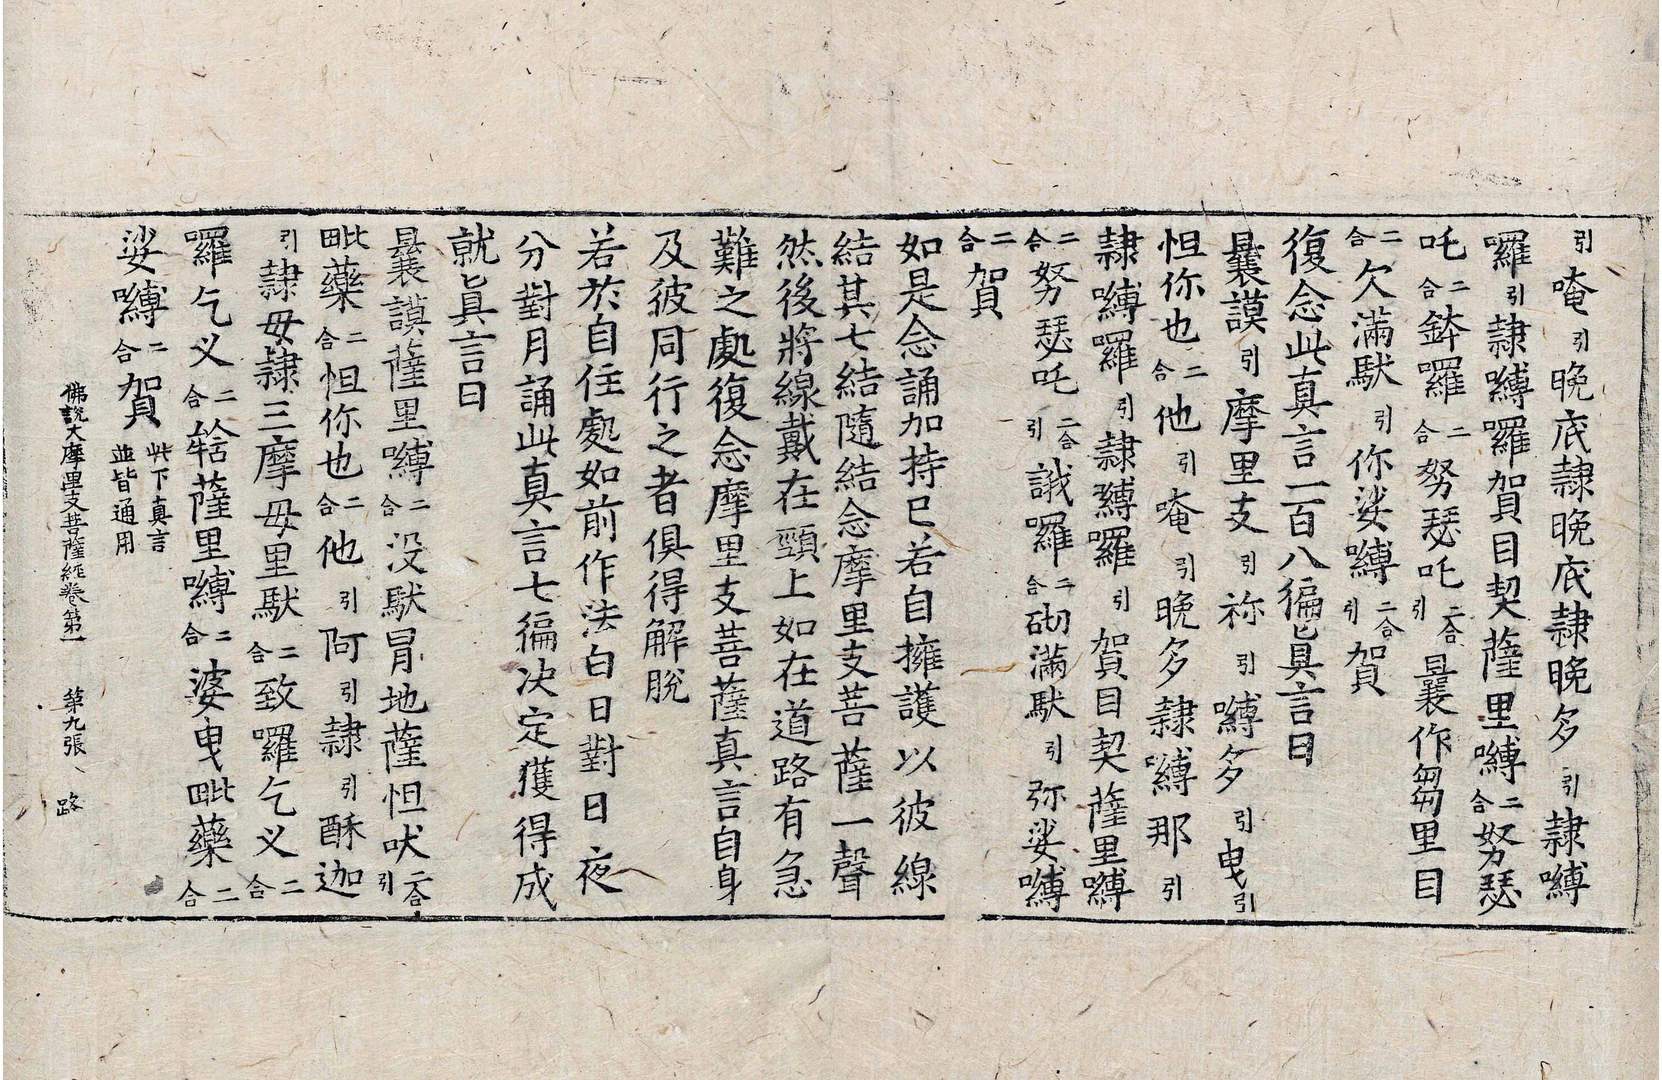 引唵引晚底隷晚底隷晚多引隷嚩
囉引隷嚩囉賀目契薩里嚩二合努瑟
吒二合鉢囉二合努瑟吒二合引曩作芻里目
二合欠滿馱引你娑嚩二合引賀
復念此真言一百八徧眞言曰
曩謨引摩里支引祢引嚩多引曳引
怛你也二合他引唵引晚多隷嚩那引
隷嚩囉引隷嚩囉引賀目契薩里嚩
二合努瑟吒二合引誐囉二合砌滿馱引弥娑嚩
二合賀
如是念誦加持已若自擁護以彼線
結其七結隨結念摩里支菩薩一聲
然後將線戴在頸上如在道路有急
難之處復念摩里支菩薩真言自身
及彼同行之者俱得解脫
若於自住處如前作法白日對日夜
分對月誦此真言七徧決定獲得成
就眞言曰
曩謨薩里嚩二合没馱冐地薩怛吠二合引
毗藥二合怛你也二合他引阿引隷引酥迦
引隷毋隷三摩毋里馱二合致囉乞义二合
囉乞义二合𤙖薩里嚩二合婆曳毗藥二合
娑嚩二合賀此下真言並皆通用
佛說大摩里支菩薩經卷第一 第九張 路